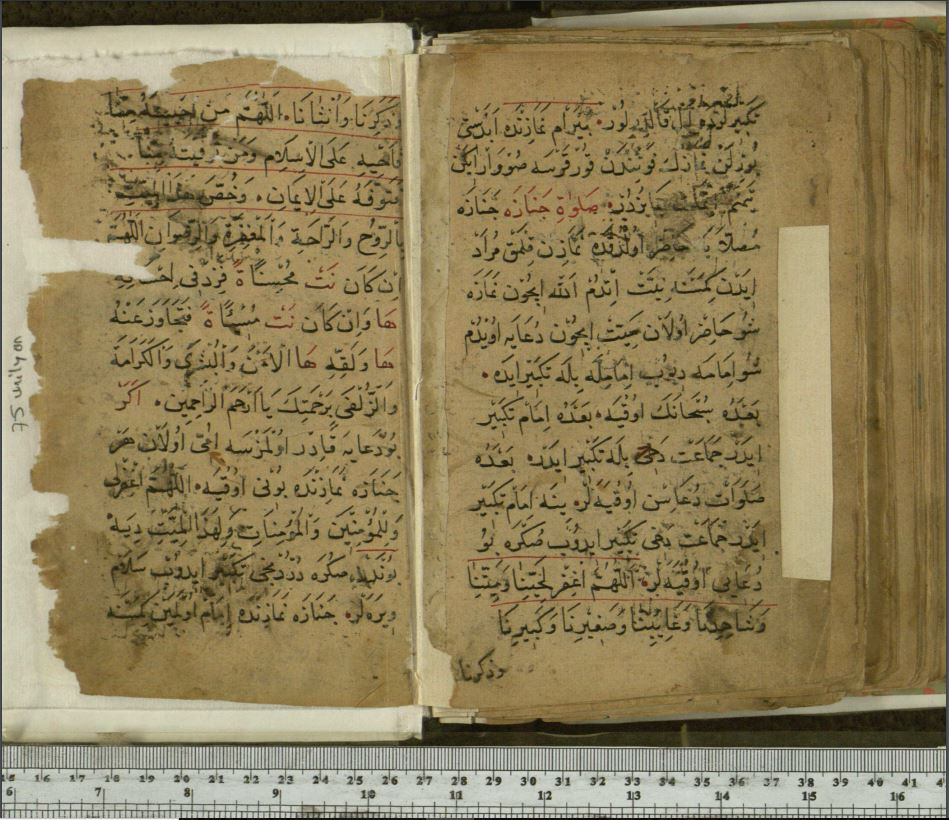 تكبيرلرده ال قالدررلور. بيرام نمازنده ابدستى
بوزلن صووارايكن
تيمم صَلوٰةِ جَنَازَه جنازه
مصلايه حاضر اولدقده نمازن قلمق مراد
ايدن كمسنه نيّت اتدم الله ايچون نمازه
شو حاضر اولان ميّت ايچون دعايه اويدم
شو امامه ديوب امامله بله تكبير ايده.
بعده سبحانك اوقيه. بعده امام تكبير
ايدر جماعت دخى بله تكبير ايدر. بعده
صلوات دعاسن اوقيه لر. ينه امام تكبير
ايدر جماعت دخى تكبير ايدوب صكره بو
دعايى اوقيه لر. اَللّٰهُمَّ اغْفِرْ لِحَيِّنَا وَمَيِّتِنَا
وَشَاهِدِنَا وَغَائِبِنَا وَصَغِيرِنَا وَكَبِيرِنَا
وذكرنا
وَذَكَرِنَا وَاُنْثَانَا. اَللّٰهُمَّ مَنْ اَحْيَيْتَهُ مِنَّا
فَاَحْيِهِ عَلَى الْاِسْلَامِ وَمَنْ تَوَفَّيْتَهُ مِنَّا
فَتَوَفَّهُ عَلَى الْاِيمَانِ. وَخُصَّ هٰذَا الْمَيِّتَ
بِالرَّوْحِ وَالرَّاحَةِ وَالْمَغْفِرَةِ وَالرِّضْوَانِ اَللّٰهُمَّ
اِنْ كَانَ نَتْ مُحْسِنًا ةً فَزِدْ فِى اِحْسَانِهِ
هَا وَاِنْ كَانَ نَتْ مُسِيئًا ةً فَتَجَاوَزْ عَنْهُ
هَا وَلَقِّهِ هَا الْاَمْنَ وَالْبُشْرَى وَالْكَرَامَةَ
وَالزُّلْفَى بِرَحْمَتِكَ يَا اَرْحَمَ الرَّاحِمِينَ. اكر
بو دعايه قادر اولمزسه امّى اولان هر
جنازه نمازنده بونى اوقيه. اَللّٰهُمَّ اغْفِرْ لِى
وَلِلْمُؤْمِنِينَ وَالْمُؤْمِنَاتِ وَلِهٰذَا الْمَيِّتِ ديه
بوندن صكره دردمجى تكبير ايدوب سلام
ويره لر. جنازه نمازنده امام اولمين كمسنه
75 milyon